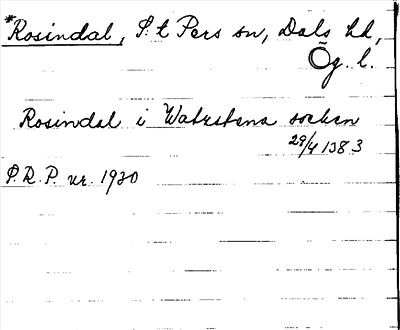 *Rosindal, S:t Pers sn, Dals hd,
Ög. l.
Rosindal i Watzstena socken
29/4 1383
S.R.P. nr. 1930